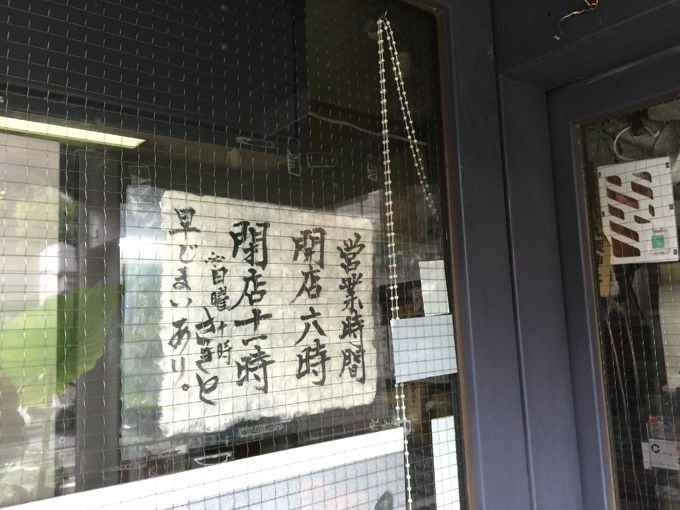 営業時間
開店六時
閉店十一時
日曜十時
ときどき
早じまいあり。
C